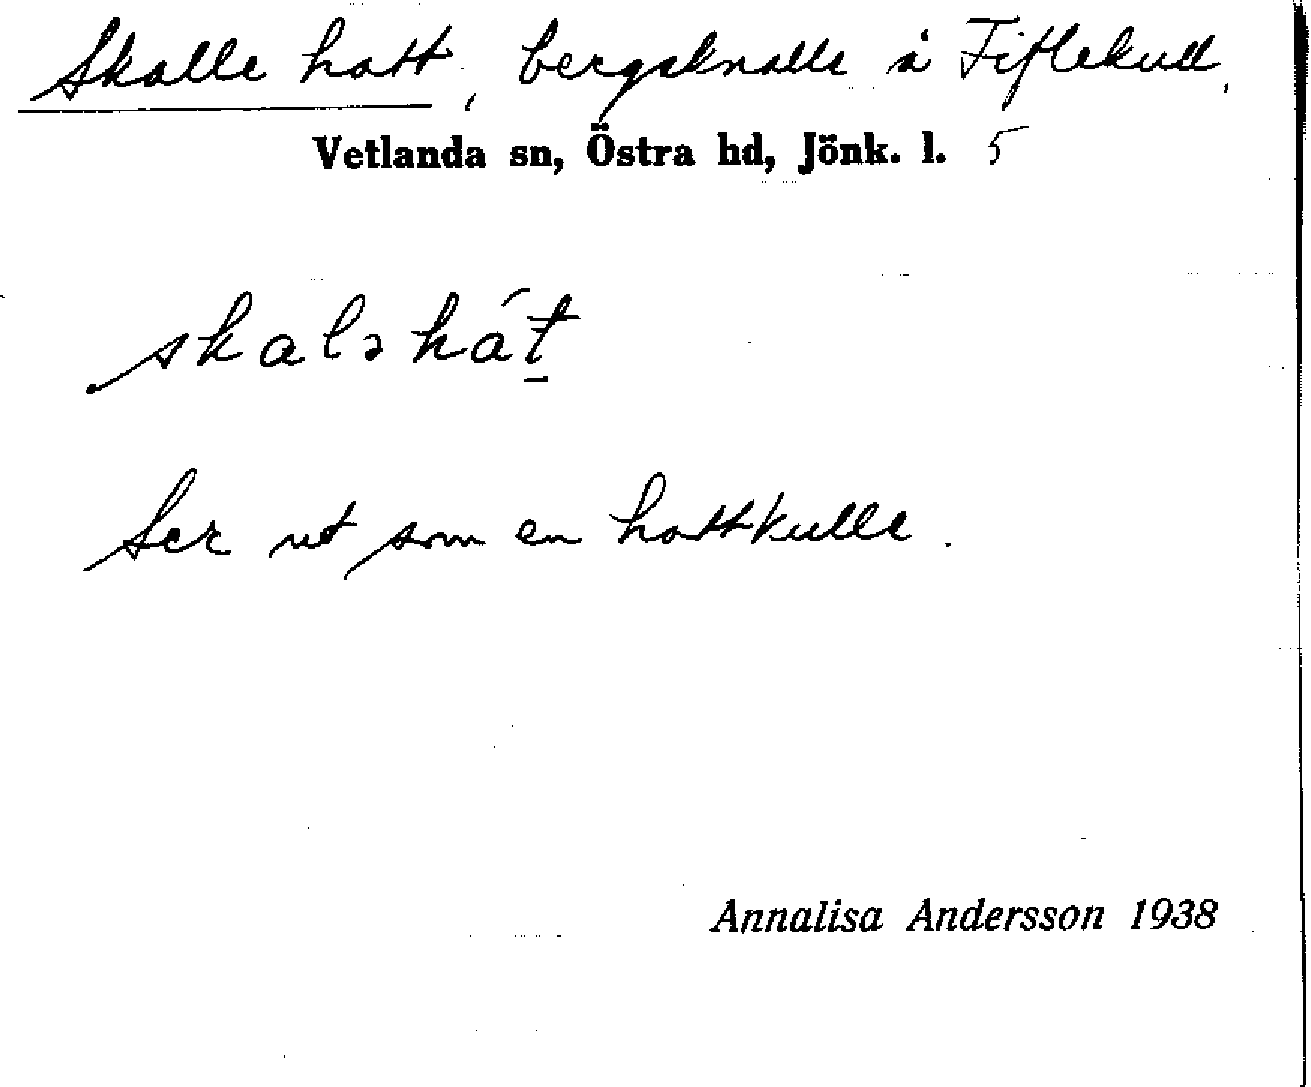 Skalle hatt, bergsknalle å Fiflekull,
Vetlanda sn, Östra hd, Jönk. l. 5
skaləhát̠
Ser ut som en hattkulle.
Annalisa Andersson 1938